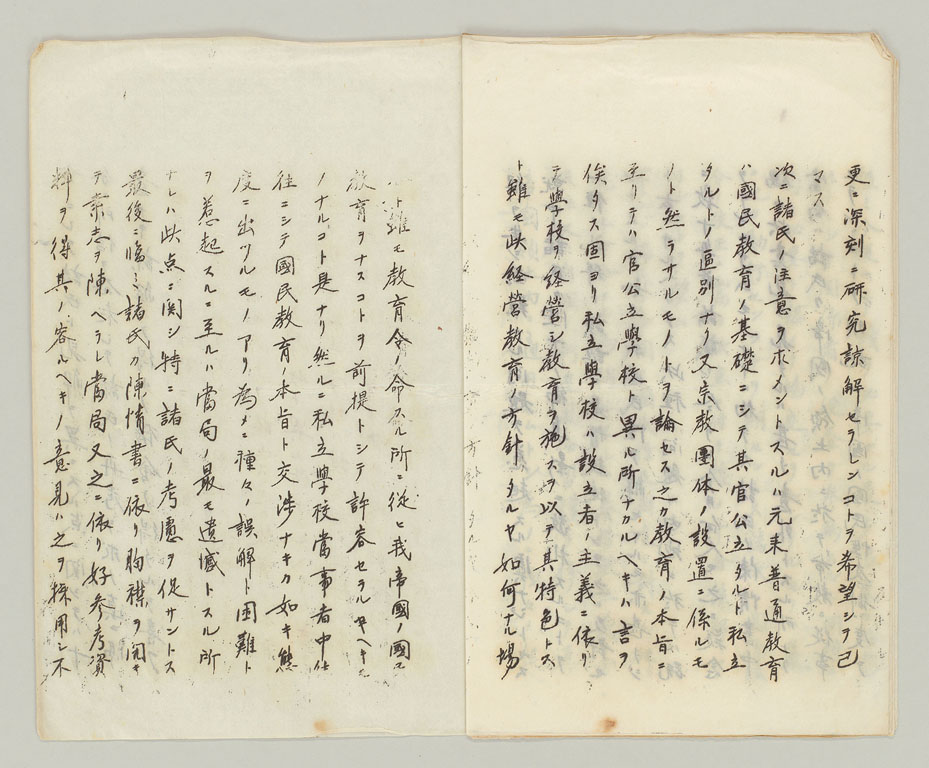 更ニ深刻ニ研究諒解セラレンコトヲ希望シヲ己
マス
次ニ諸氏ノ注意ヲ求メントスルハ元来普通教育
ハ國民教育ノ基礎ニシテ其官公立タルト私立
タルトノ區別ナリ又宗教團体ノ設置ニ係ルモ
ノト然ラサルモノトヲ論セス之カ教育ノ本旨ニ
至リテハ官公立學校ト異ル所ナカルヘキハ言ヲ
俟タス固ヨリ私立學校ハ設立者ノ主義ニ依リ
テ學校ヲ経營シ教育ヲ施スヲ以テ其特色トス
ト雖モ此経營教育ノ方針タルヤ如何ナル場
ト雖モ教育令ノ命スル所ニ従ヒ我帝國ノ國民
教育ヲナスコトヲ前提トシテ許容セラルヤヘキモ
ノナルコト是ナリ然ルニ私立學校當事者中往
往ニシテ國民教育ノ本旨ト交渉ナキカ如キ態
度ニ出ツルモノアリ為メニ種々ノ誤解ト困難ト
ヲ惹起スルニ至ルハ當局ノ最モ遺憾トスル所
ナレハ此点ニ関シ特ニ諸氏ノ考慮ヲ促サントス
最後ニ臨ミ諸氏カ陳情書ニ依リ胸襟ヲ開キ
テ素志ヲ陳ヘラレ當局又之ニ依リ好参考資
料ヲ得其ノ容ルヘキノ意見ハ之ヲ採用シ不